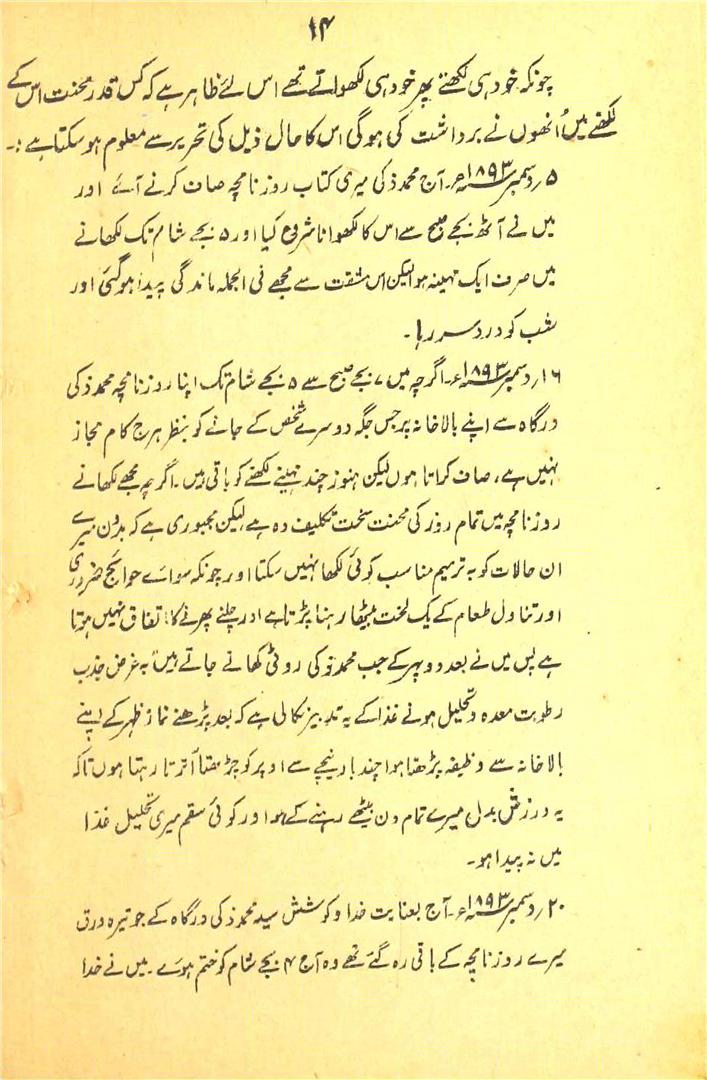 ۱۴
چونکہ خود ہی لکھتے پھر خود ہی لکھواتے تھے اس لئے ظاہر ہے کہ کس قدر محنت اس کے
لکھنے میں اُنھوں نے برداشت کی ہوگی اس کا حال ذیل کی تحریر سے معلوم ہو سکتا ہے :۔
۵؍دسمبر ۱۸۹۳ء۔آج محمد ذکی میری کتاب روزنامچہ صاف کرنے آئے اور
میں نے آٹھ بجے صبح سے اس کا لکھوانا شروع کیا اور ۵ بجے شام تک لکھانے
میں صرف ایک مہینہ ہوا لیکن اس مشقت سے مجھے فی الجملہ ماندگی پیدا ہوگئی اور
شب کو درد سر رہا۔
۱۶؍دسمبر ۱۸۹۳ء۔اگرچہ میں ۷ بجے صبح سے ۵ بجے شام تک اپنا روزنامچہ محمد ذکی
درگاہ سے اپنے بالاخانہ پر جس جگہ دوسرے شخص کے جانے کو بنظر ہرج کام مجاز
نہیں ہے، صاف کراتا ہوں لیکن ہنوز چند مہینے لکھنے کو باقی ہیں۔اگرچہ مجھے لکھانے
روزنامچہ میں تمام روز کی محنت سخت تکلیف دہ ہے لیکن مجبوری ہے کہ بدون میرے
ان حالات کو بہ ترمیم مناسب کوئی لکھا نہیں سکتا اور چونکہ سوائے حوائج ضروری
اور تناول طعام کے یک لخت بیٹھا رہنا پڑتا ہے اور چلنے پھرنے کا اتفاق نہیں ہوتا
ہے پس میں نے بعد دوپہر کے جب محمد ذکی روٹی کھانے جاتے ہیں بہ غرض جذب
رطوبت معدہ و تحلیل ہونے غذا کے یہ تدبیر نکالی ہے کہ بعد پڑھنے نماز ظہر کے اپنے
بالاخانہ سے وظیفہ پڑھتا ہوا چند بار نیچے سے اوپر کو چڑھتا اُترتا رہتا ہوں تاکہ
یہ ورزش بدل میرے تمام دن بیٹھے رہنے کے ہو اور کوئی سقم میری تحلیل غذا
میں نہ پیدا ہو۔
۲۰؍دسمبر ۱۸۹۳ء۔آج بعنایت خدا و کوشش سید محمد ذکی درگاہ کے جو تیرہ ورق
میرے روزنامچہ کے باقی رہ گئے تھے وہ آج ۴ بجے شام کو ختم ہوے۔میں نے خدا